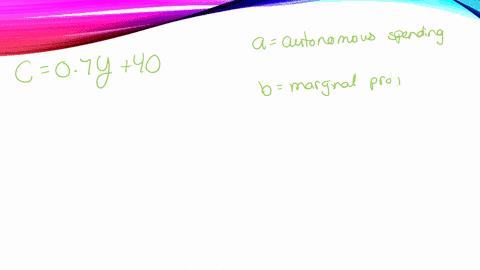 C = 0.7y + 40
a = autonomous spending
b = marginal pro